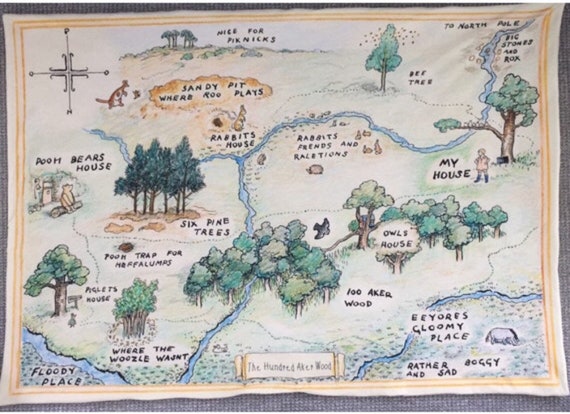 TO NORTH POLE
NICE FOR
PIKNICKS
BIG
STONES
AND
ROX
BEE
TREE
SANDY PIT
WHERE ROO PLAYS
RABBITS
HOUSE
RABBITS
FRENDS AND
RALETIONS
POOH BEARS
HOUSE
MY
HOUSE
SIX PINE
TREES
OWLS
HOUSE
POOH TRAP FOR
HEFFALUMPS
PIGLETS
HOUSE
100 AKER
WOOD
EEYORES
GLOOMY
PLACE
WHERE THE
WOOZLE WASNT
FLOODY
PLACE
RATHER BOGGY
AND SAD
The Hundred Aker Wood